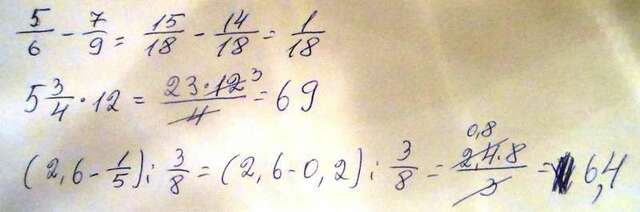 5/6 - 7/9 = 15/18 - 14/18 = 1/18
5 3/4 · 12 = 23·12 3/4 = 69
(2,6 - 1/5) : 3/8 = (2,6 - 0,2) : 3/8 = 0,8 2,4·8/3 = 6,4